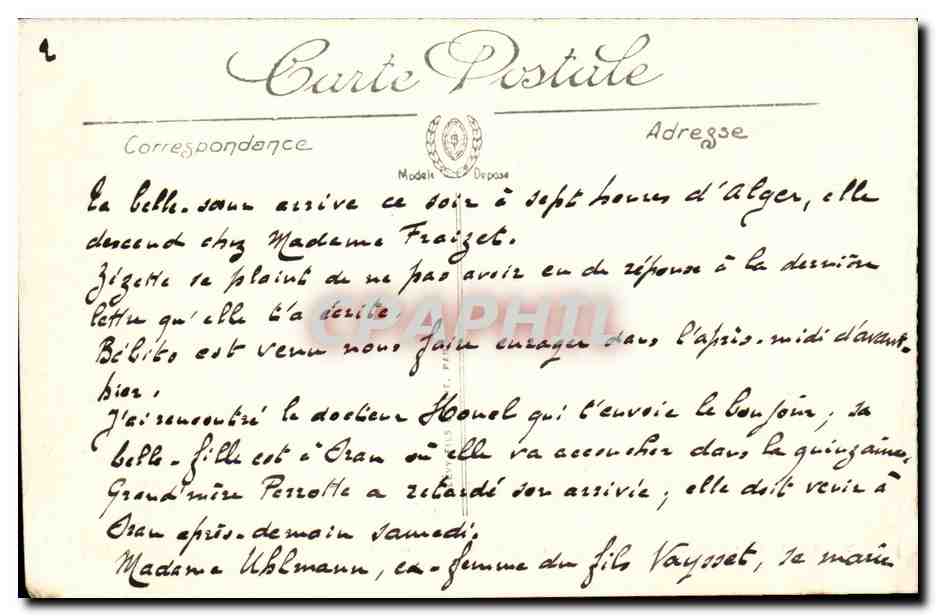 2
Carte Postale
Correspondance
Adresse
Modèle Déposé
Ta belle-sœur arrive ce soir à sept heures d'Alger, elle
descend chez Madame Fraizet.
Zézette se plaint de ne pas avoir eu de réponse à la dernière
lettre qu'elle t'a écrite.
CPAPHIL
Bébito est venu nous faire enrager dans l'après-midi d'avant-
hier.
J'ai rencontré le docteur Honel qui t'envoie le bonjour; sa
belle-fille est à Oran où elle va accoucher dans la quinzaine.
Grand'mère Perrotte a retardé son arrivée; elle doit venir à
Oran après-demain samedi.
Madame Uhlmann, ex-femme du fils Vaysset, se marie
LEVY FILS